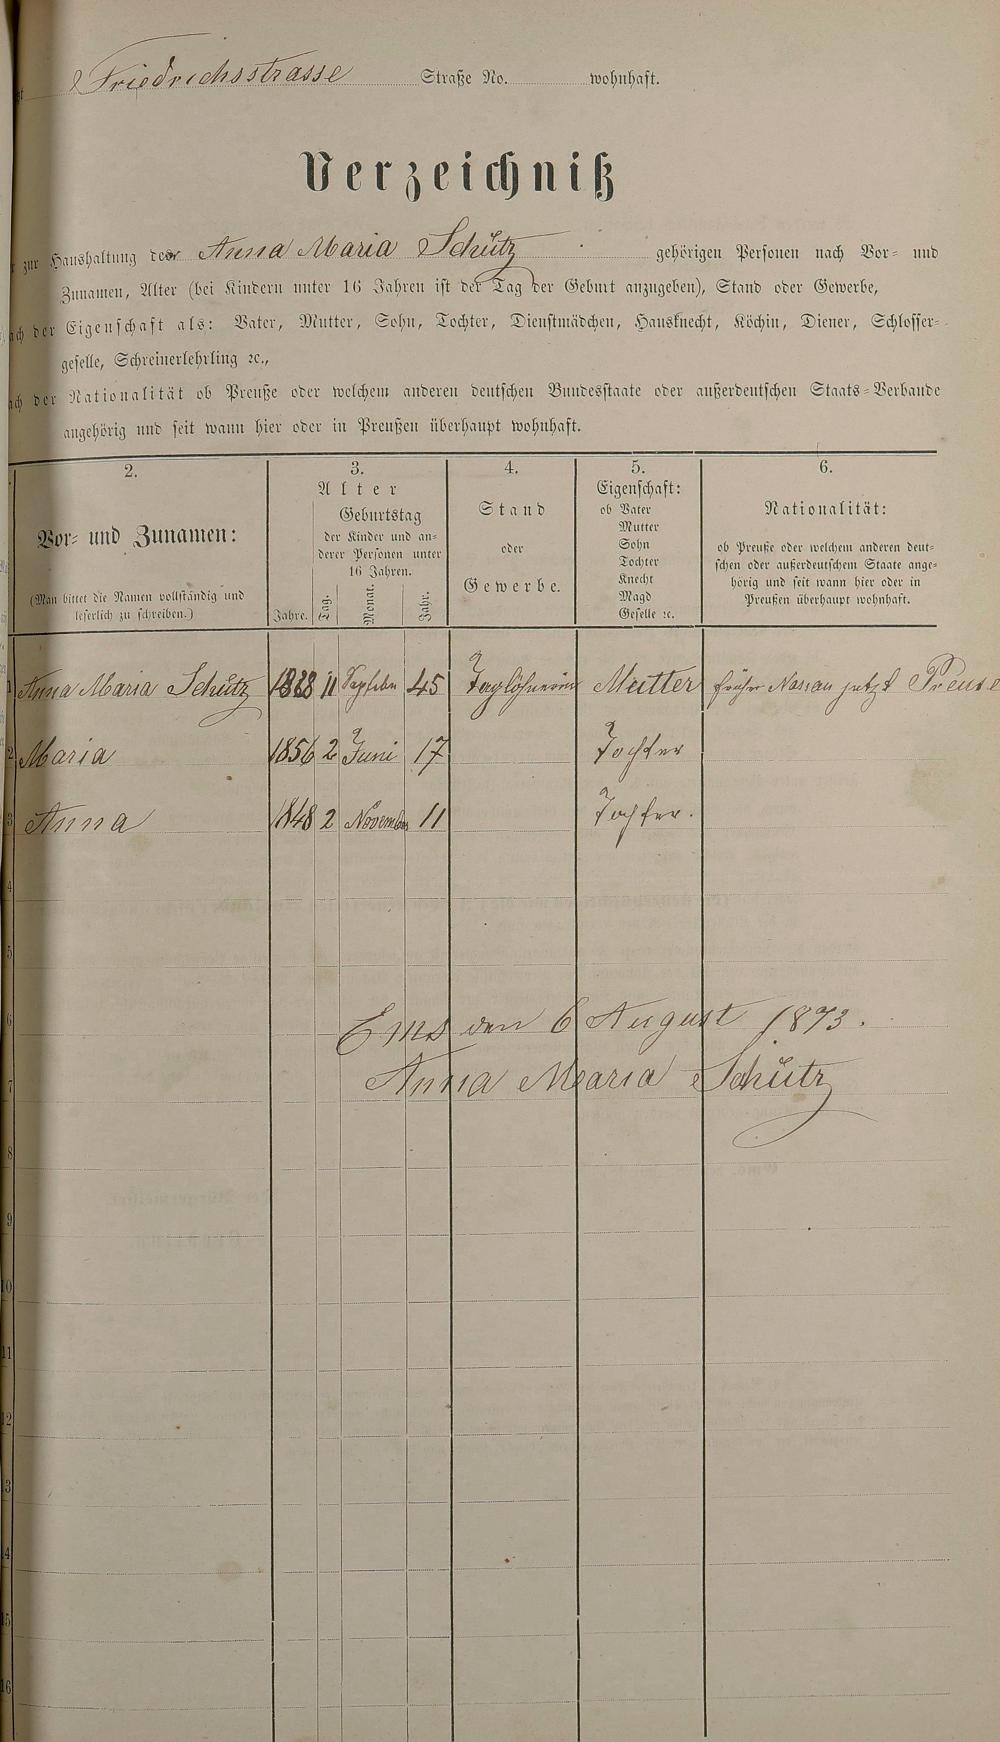 Friedrichsstrasse Straße No. wohnhaft.
Verzeichniß
zur Haushaltung der Anna Maria Schütz gehörigen Personen nach Vor- und
Zunamen, Alter (bei Kindern unter 16 Jahren ist der Tag der Geburt anzugeben), Stand oder Gewerbe,
nach der Eigenschaft als: Vater, Mutter, Sohn, Tochter, Dienstmädchen, Hausknecht, Köchin, Diener, Schlosser-
geselle, Schreinerlehrling ꝛc.,
nach der Nationalität ob Preuße oder welchem anderen deutschen Bundesstaate oder außerdeutschen Staats-Verbande
angehörig und seit wann hier oder in Preußen überhaupt wohnhaft.
2. 3. 4. 5. 6.
Vor- und Zunamen:
(Man bittet die Namen vollständig und
leserlich zu schreiben.)
Alter
Geburtstag
der Kinder und an-
derer Personen unter
16 Jahren.
Jahre. Tag. Monat. Jahr.
Stand
oder
Gewerbe.
Eigenschaft:
ob Vater
Mutter
Sohn
Tochter
Knecht
Magd
Geselle ꝛc.
Nationalität:
ob Preuße oder welchem anderen deut-
schen oder außerdeutschem Staate ange-
hörig und seit wann hier oder in
Preußen überhaupt wohnhaft.
1 Anna Maria Schütz 1828 11 45 Taglöhnerin Mutter früher Nassau jetzt Preuse
2 Maria 1856 2 Juni 17 Tochter
3 Anna 1848 2 November 11 Tochter.
4
5
6
Ems den 6 August 1873.
7
Anna Maria Schütz
8
9
10
11
12
13
14
15
16